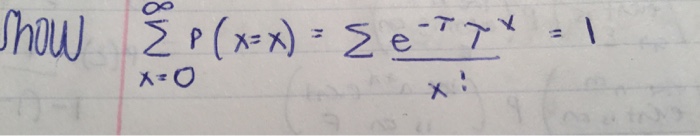 Show ∞ Σ x=0 P(x=x) = Σ e^-τ τ^x / x! = 1